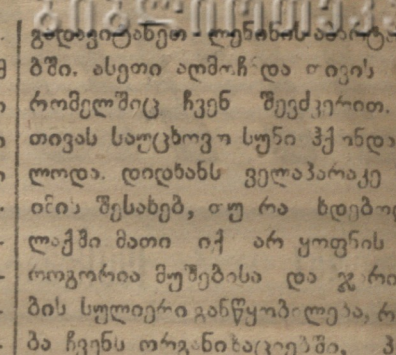 ბიბლიოთეკა
გადავიტანეთ ლენინის
ბში. ასეთი აღმოჩნდა თივის
რომელშიც ჩვენ შევძვერით.
თივას საუცხოვო სუნი ჰქონდა
ლოდა. დიდხანს ველაპარაკე
იმის შესახებ, თუ რა ხდებოდ
ლაქში მათი იქ არ ყოფნის
როგორია მუშებისა და ჯარი
ბის სულიერი განწყობილება, რ
ბა ჩვენს ორგანიზაციებში,